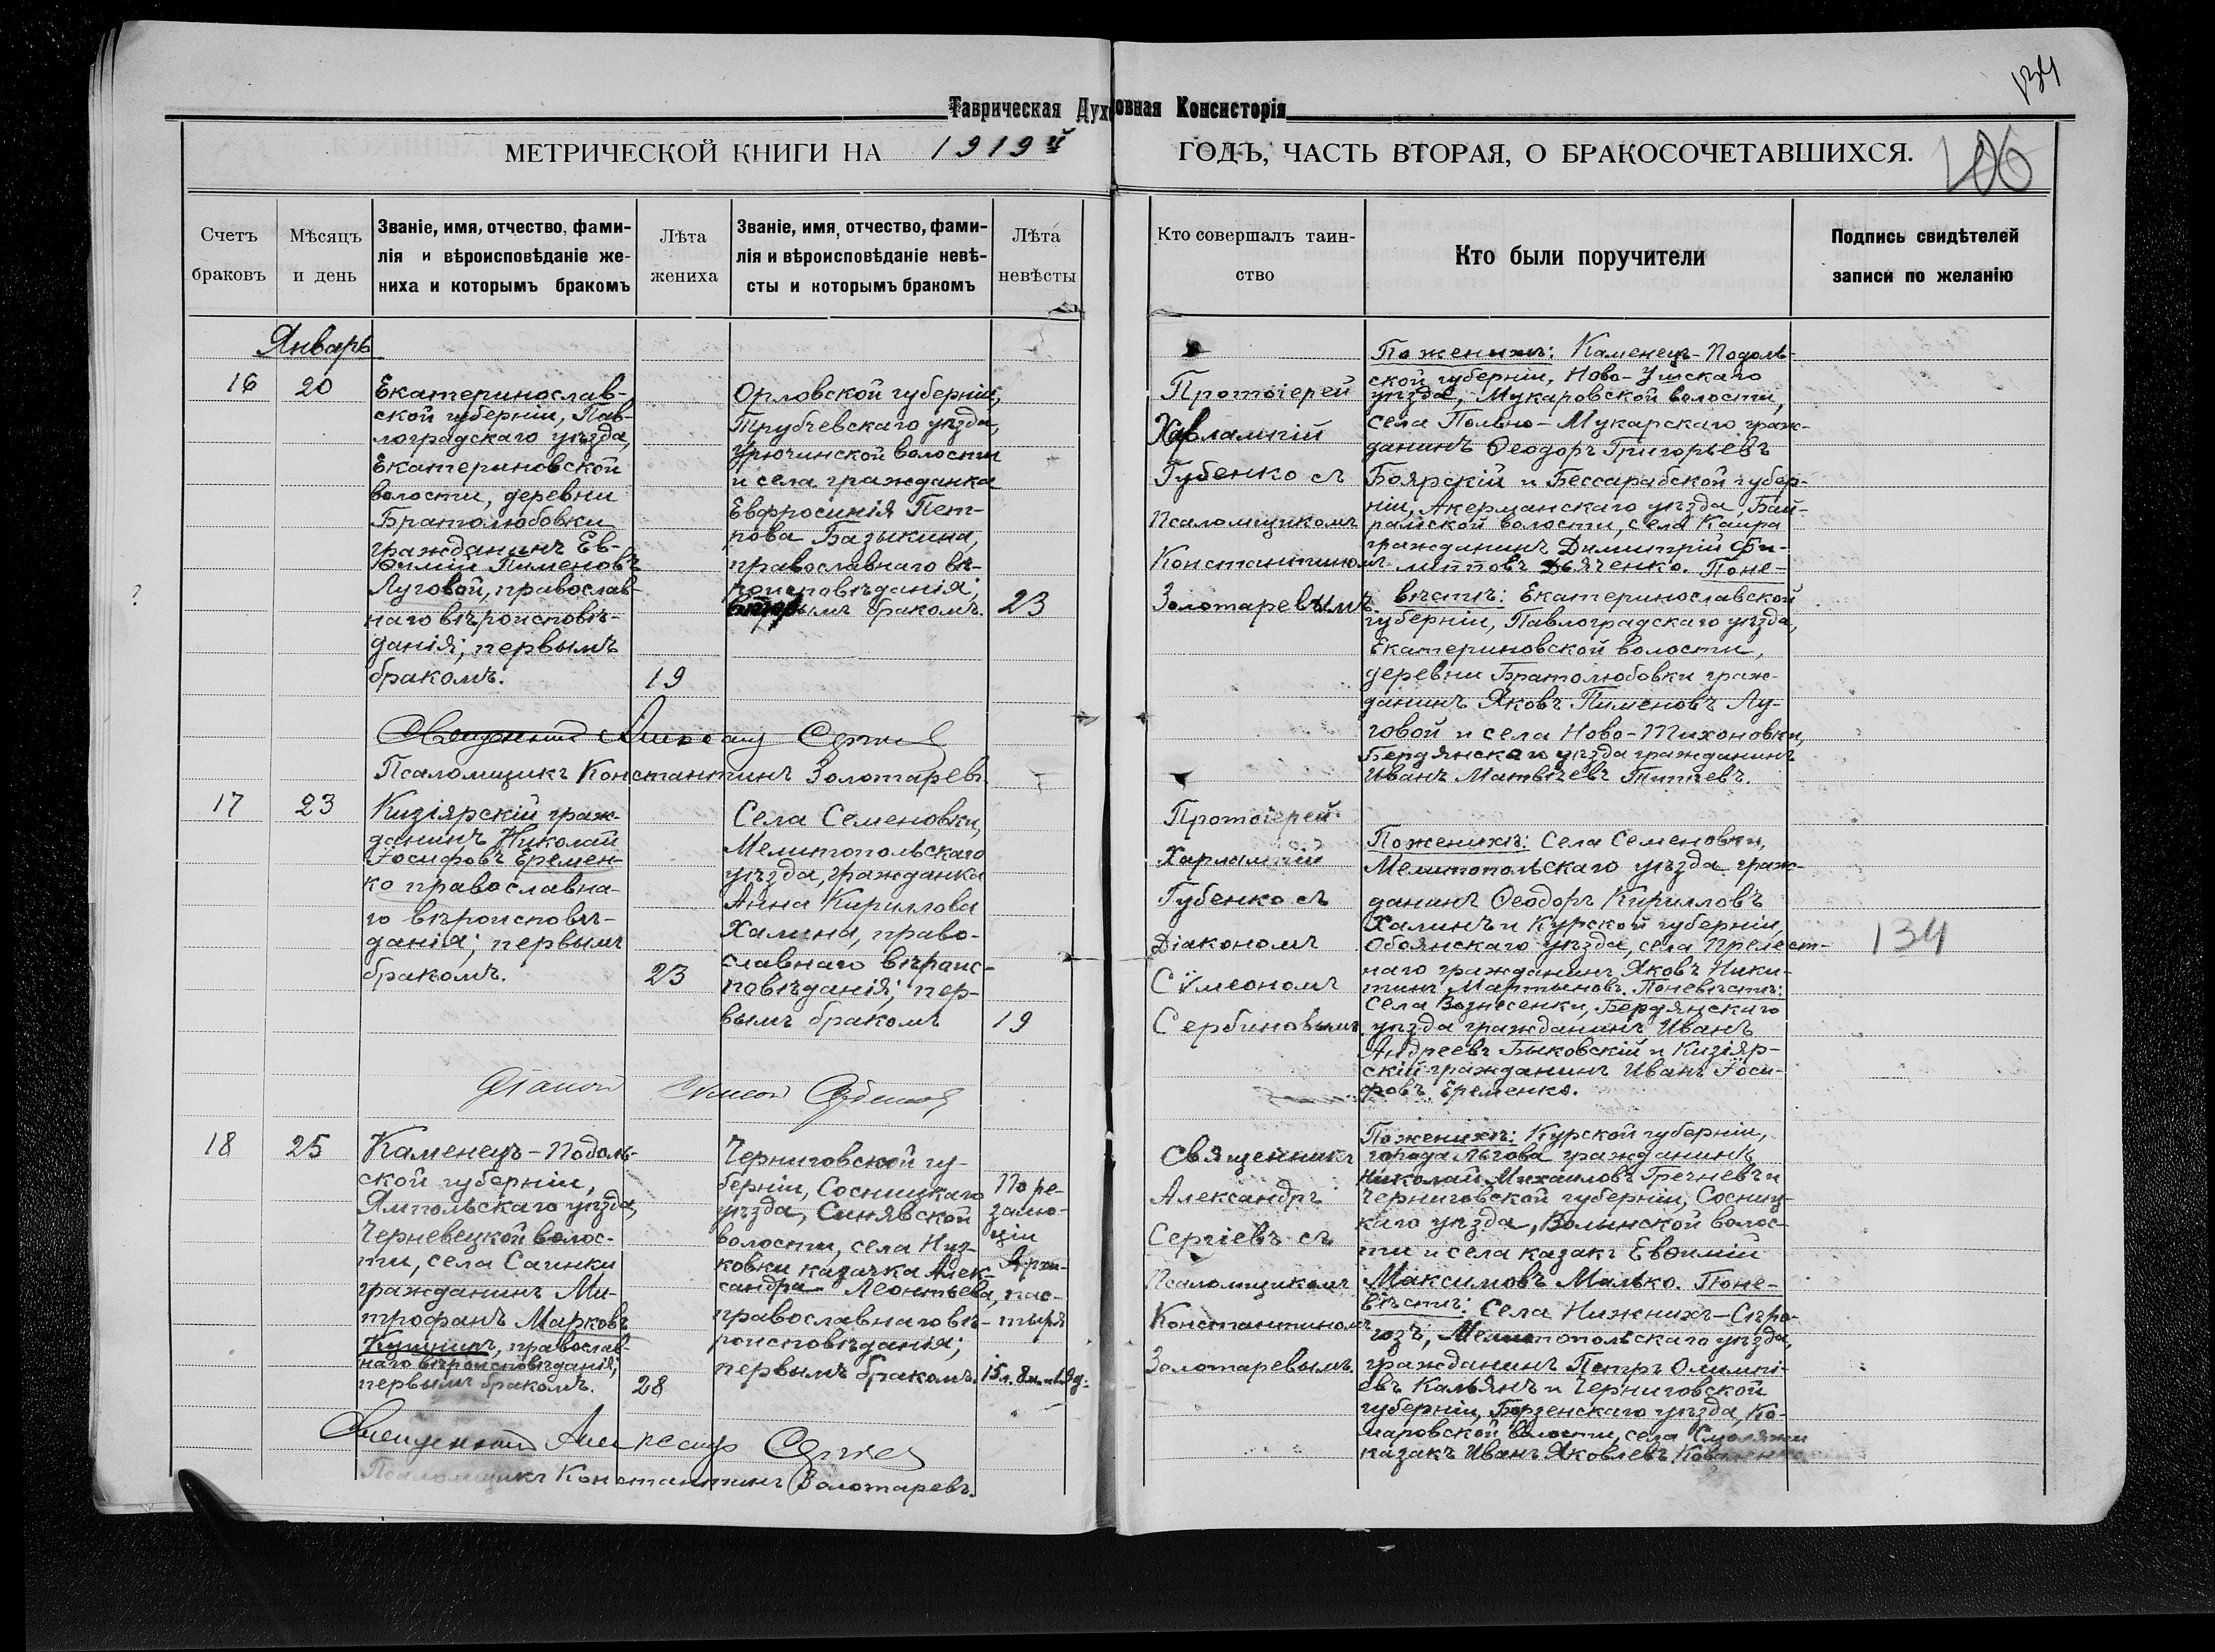 134
Таврическая Духовная Консисторія
МЕТРИЧЕСКОЙ КНИГИ НА 1919й ГОДЪ, ЧАСТЬ ВТОРАЯ, О БРАКОСОЧЕТАВШИХСЯ.
106
Счетъ
браковъ
Мѣсяцъ
и день
Званіе, имя, отчество, фами-
лія и вѣроисповѣданіе же-
ниха и которымъ бракомъ
Лѣта
жениха
Званіе, имя, отчество, фами-
лія и вѣроисповѣданіе невѣ-
сты и которымъ бракомъ
Лѣта
невѣсты
Кто совершалъ таин-
ство
Кто были поручители
Подпись свидѣтелей
записи по желанію
Январь
16
20
Екатеринослав-
ской губерніи, Пав-
лоградскаго уѣзда,
Екатериновской
волости, деревни
Братолюбовки
гражданинъ Ев-
ѳимій Пименовъ
Луговой, православ-
наго вѣроисповѣ-
данія; первымъ
бракомъ.
19
Орловской губерніи,
Трубчевскаго уѣзда,
Урючинской волости
и села гражданка
Евфросинія Пет-
рова Базыкина,
православнаго вѣ-
роисповѣданія;
вторымъ бракомъ.
23
Протоіерей
Харлампій
Губенко съ
Псаломщикомъ
Константиномъ
Золотаревымъ.
По женихѣ: Каменецъ-Подоль-
ской губерніи, Ново-Ушскаго
уѣзда, Мукаровской волости,
села Польно-Мукарскаго граж-
данинъ Ѳеодоръ Григорьевъ
Боярскій и Бессарабской губер-
ніи, Акерманскаго уѣзда, Бай-
рамской волости, села Каира
гражданинъ Димитрій Фи-
липповъ Дьяченко. По не-
вѣстѣ: Екатеринославской
губерніи, Павлоградскаго уѣзда,
Екатериновской волости,
деревни Братолюбовки граж-
данинъ Яковъ Пименовъ Лу-
говой и села Ново-Тихоновки,
Бердянскаго уѣзда гражданинъ
Иванъ Матвѣевъ Титаевъ.
Священникъ Александръ Сергіевъ
Псаломщикъ Константинъ Золотаревъ.
17
23
Кизіярскій граж-
данинъ Николай
Іосифовъ Еремен-
ко православна-
го вѣроисповѣ-
данія; первымъ
бракомъ.
23
Села Семеновки,
Мелитопольскаго
уѣзда, гражданка
Анна Кириллова
Халина, право-
славнаго вѣроис-
повѣданія; пер-
вымъ бракомъ
19
Протоіерей
Харлампій
Губенко съ
Діакономъ
Сѵмеономъ
Сербиновымъ
По женихѣ: Села Семеновки,
Мелитопольскаго уѣзда граж-
данинъ Ѳеодоръ Кирилловъ
Халинъ и Курской губерніи,
Обоянскаго уѣзда, села Прелест-
наго гражданинъ Яковъ Ники-
тинъ Мартыновъ. По невѣстѣ:
Села Вознесенки, Бердянскаго
уѣзда гражданинъ Иванъ
Андреевъ Быковскій и Кизіяр-
скій гражданинъ Иванъ Іоси-
фовъ Еременко.
134
Діаконъ Сѵмеонъ Сербиновъ
18
25
Каменецъ-Подоль-
ской губерніи,
Ямпольскаго уѣзда,
Черневецкой волос-
ти, села Саинки
гражданинъ Ми-
трофанъ Марковъ
православ-
наго вѣроисповѣданія;
первымъ бракомъ.
28
Черниговской гу-
берніи, Сосницкаго
уѣзда, Синявской
волости, села Низ-
ковки казачка Алек-
сандра Леонтьева,
православнаго вѣ-
роисповѣданія;
первымъ бракомъ.
По ре-
золю-
ціи
Архи-
пас-
тыря
15 л. 8 м. и 19 д.
Священникъ
Александръ
Сергіевъ съ
Псаломщикомъ
Константиномъ
Золотаревымъ.
По женихѣ: Курской губерніи,
города Льгова гражданинъ
Николай Михаиловъ Гречневъ и
Черниговской губерніи, Сосниц-
каго уѣзда, Волынской волос-
ти и села казакъ Евѳимій
Максимовъ Малько. По не-
вѣстѣ: Села Нижнихъ-Сѣро-
гозъ, Мелитопольскаго уѣзда,
гражданинъ Петръ Олимпі-
евъ Кальянъ и Черниговской
губерніи, Борзенскаго уѣзда, Ко-
маровской волости, села Смоляжи
казакъ Иванъ Яковлевъ
Священникъ Александръ Сергіевъ
Псаломщикъ Константинъ Золотаревъ.